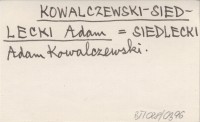 KOWALCZEWSKI-SIED-
LECKI Adam = SIEDLECKI
Adam Kowalczewski.